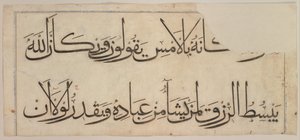 بالامس يقولون ويكان الله
يبسط الرزق لمن يشا من عباده ويقدر لولا ان